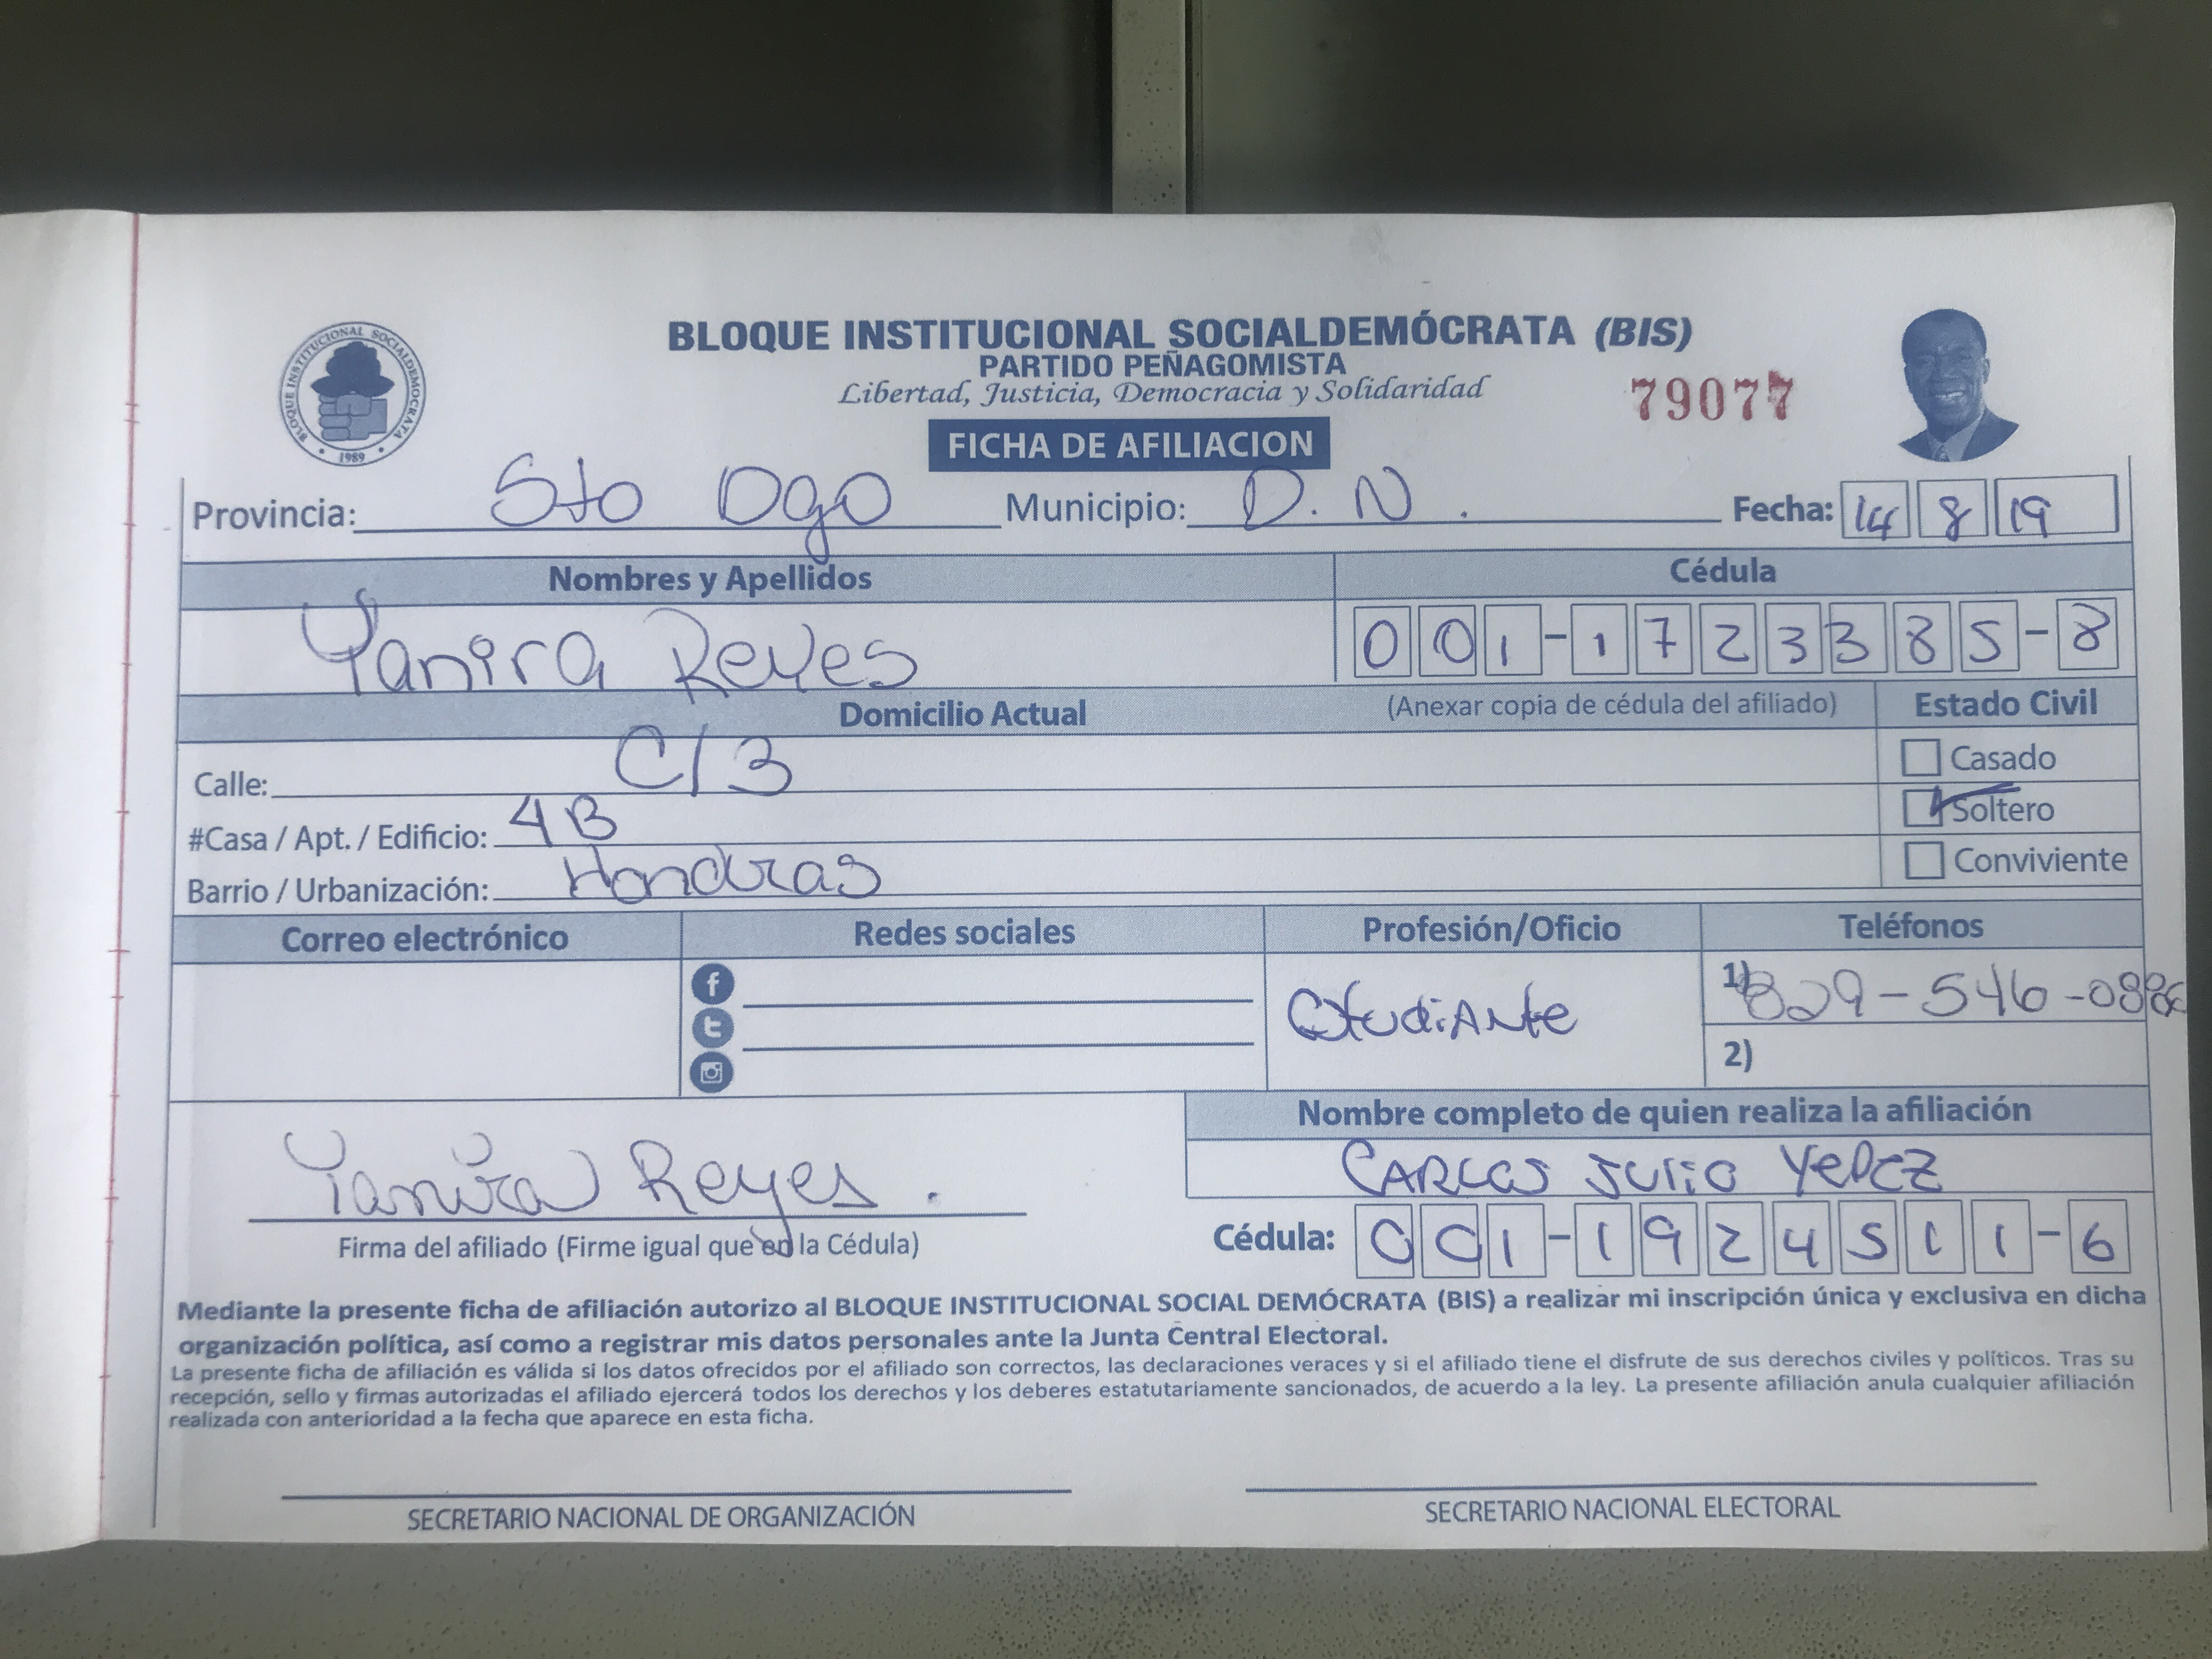 BLOQUE INSTITUCIONAL SOCIALDEMOCRATA
1989
BLOQUE INSTITUCIONAL SOCIALDEMÓCRATA (BIS)
PARTIDO PEÑAGOMISTA
Libertad, Justicia, Democracia y Solidaridad
79077
FICHA DE AFILIACION
Provincia: Sto Dgo Municipio: D. N. Fecha: 14 8 19
Nombres y Apellidos Cédula
Yanira Reyes 001-1723385-8
Domicilio Actual (Anexar copia de cédula del afiliado) Estado Civil
Calle: C/3 Casado
#Casa / Apt. / Edificio: 4B Soltero
Barrio / Urbanización: Honduras Conviviente
Correo electrónico Redes sociales Profesión/Oficio Teléfonos
Estudiante 1) 829-546-
2)
Nombre completo de quien realiza la afiliación
Yanira Reyes. CARLOS JULIO YEPEZ
Firma del afiliado (Firme igual que en la Cédula) Cédula: 001-1924511-6
Mediante la presente ficha de afiliación autorizo al BLOQUE INSTITUCIONAL SOCIAL DEMÓCRATA (BIS) a realizar mi inscripción única y exclusiva en dicha
organización política, así como a registrar mis datos personales ante la Junta Central Electoral.
La presente ficha de afiliación es válida si los datos ofrecidos por el afiliado son correctos, las declaraciones veraces y si el afiliado tiene el disfrute de sus derechos civiles y políticos. Tras su
recepción, sello y firmas autorizadas el afiliado ejercerá todos los derechos y los deberes estatutariamente sancionados, de acuerdo a la ley. La presente afiliación anula cualquier afiliación
realizada con anterioridad a la fecha que aparece en esta ficha.
SECRETARIO NACIONAL DE ORGANIZACIÓN SECRETARIO NACIONAL ELECTORAL